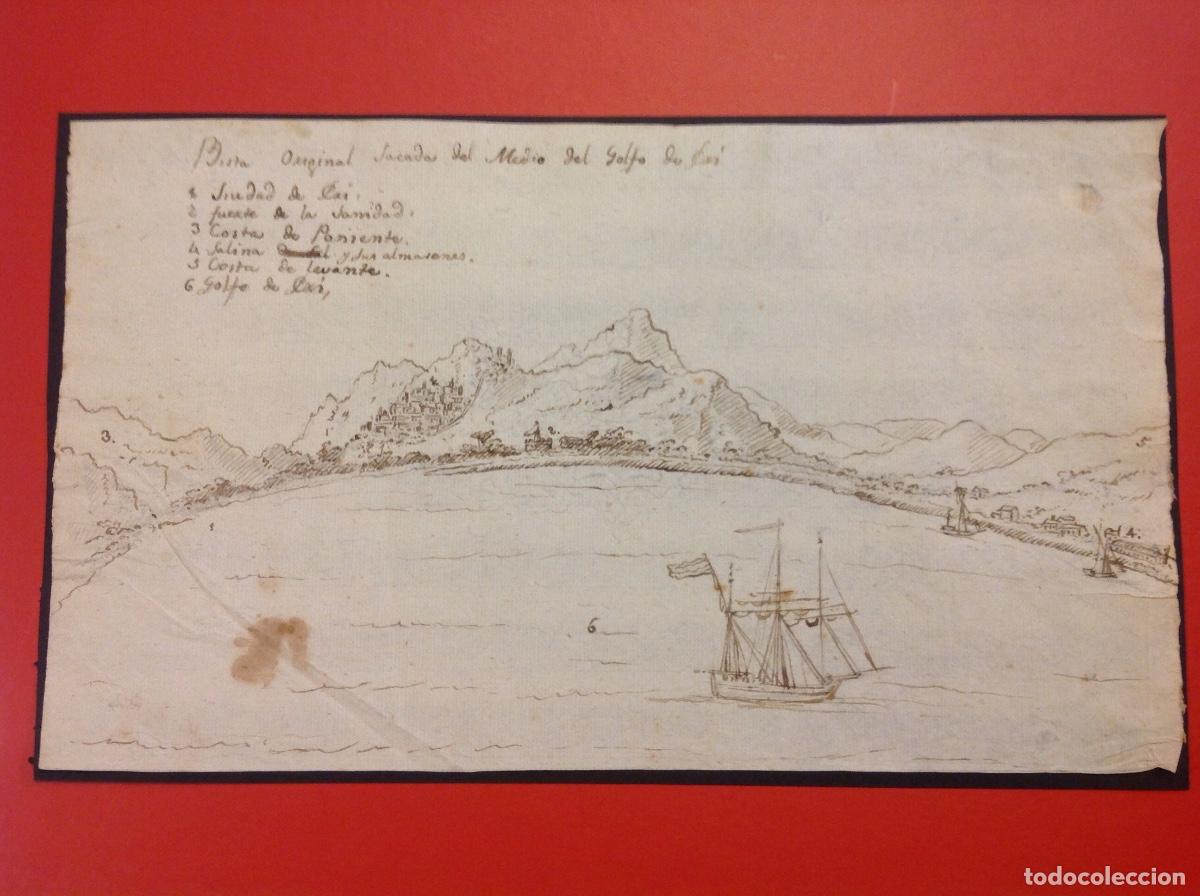 Bista Original Sacada del Medio del Golfo de Exi
1 Siudad de Exi.
2 fuerte de la Sanidad.
3 Costa de Poniente.
4 Salina y sus almasenes.
5 Costa de levante.
6 Golfo de Exi,
3.
5
4.
6
todocoleccion